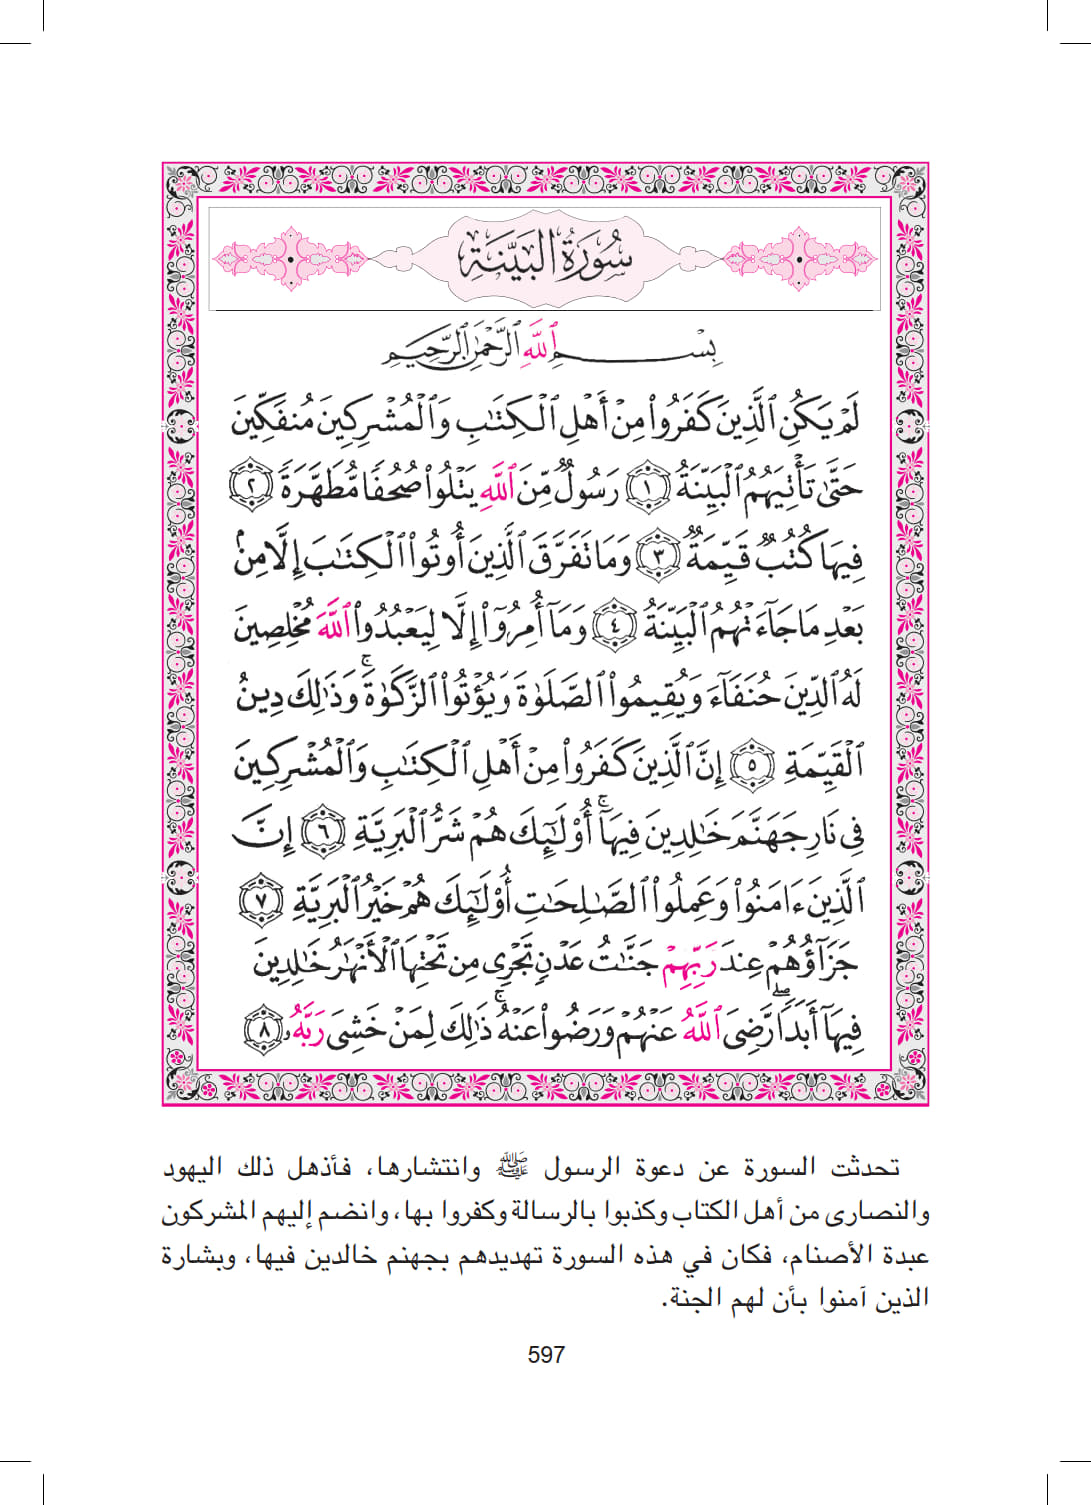 سُورَةُ البَيِّنَةِ
بِسْمِ ٱللَّهِ ٱلرَّحْمَٰنِ ٱلرَّحِيمِ
لَمْ يَكُنِ ٱلَّذِينَ كَفَرُوا۟ مِنْ أَهْلِ ٱلْكِتَٰبِ وَٱلْمُشْرِكِينَ مُنفَكِّينَ
حَتَّىٰ تَأْتِيَهُمُ ٱلْبَيِّنَةُ ١ رَسُولٌ مِّنَ ٱللَّهِ يَتْلُوا۟ صُحُفًا مُّطَهَّرَةً ٢
فِيهَا كُتُبٌ قَيِّمَةٌ ٣ وَمَا تَفَرَّقَ ٱلَّذِينَ أُوتُوا۟ ٱلْكِتَٰبَ إِلَّا مِنۢ
بَعْدِ مَا جَآءَتْهُمُ ٱلْبَيِّنَةُ ٤ وَمَآ أُمِرُوٓا۟ إِلَّا لِيَعْبُدُوا۟ ٱللَّهَ مُخْلِصِينَ
لَهُ ٱلدِّينَ حُنَفَآءَ وَيُقِيمُوا۟ ٱلصَّلَوٰةَ وَيُؤْتُوا۟ ٱلزَّكَوٰةَ ۚ وَذَٰلِكَ دِينُ
ٱلْقَيِّمَةِ ٥ إِنَّ ٱلَّذِينَ كَفَرُوا۟ مِنْ أَهْلِ ٱلْكِتَٰبِ وَٱلْمُشْرِكِينَ
فِى نَارِ جَهَنَّمَ خَٰلِدِينَ فِيهَآ ۚ أُو۟لَٰٓئِكَ هُمْ شَرُّ ٱلْبَرِيَّةِ ٦ إِنَّ
ٱلَّذِينَ ءَامَنُوا۟ وَعَمِلُوا۟ ٱلصَّٰلِحَٰتِ أُو۟لَٰٓئِكَ هُمْ خَيْرُ ٱلْبَرِيَّةِ ٧
جَزَآؤُهُمْ عِندَ رَبِّهِمْ جَنَّٰتُ عَدْنٍ تَجْرِى مِن تَحْتِهَا ٱلْأَنْهَٰرُ خَٰلِدِينَ
فِيهَآ أَبَدًا ۖ رَّضِىَ ٱللَّهُ عَنْهُمْ وَرَضُوا۟ عَنْهُ ۚ ذَٰلِكَ لِمَنْ خَشِىَ رَبَّهُۥ ٨
تحدثت السورة عن دعوة الرسول ﷺ وانتشارها، فأذهل ذلك اليهود
والنصارى من أهل الكتاب وكذبوا بالرسالة وكفروا بها، وانضم إليهم المشركون
عبدة الأصنام، فكان في هذه السورة تهديدهم بجهنم خالدين فيها، وبشارة
الذين آمنوا بأن لهم الجنة.
597